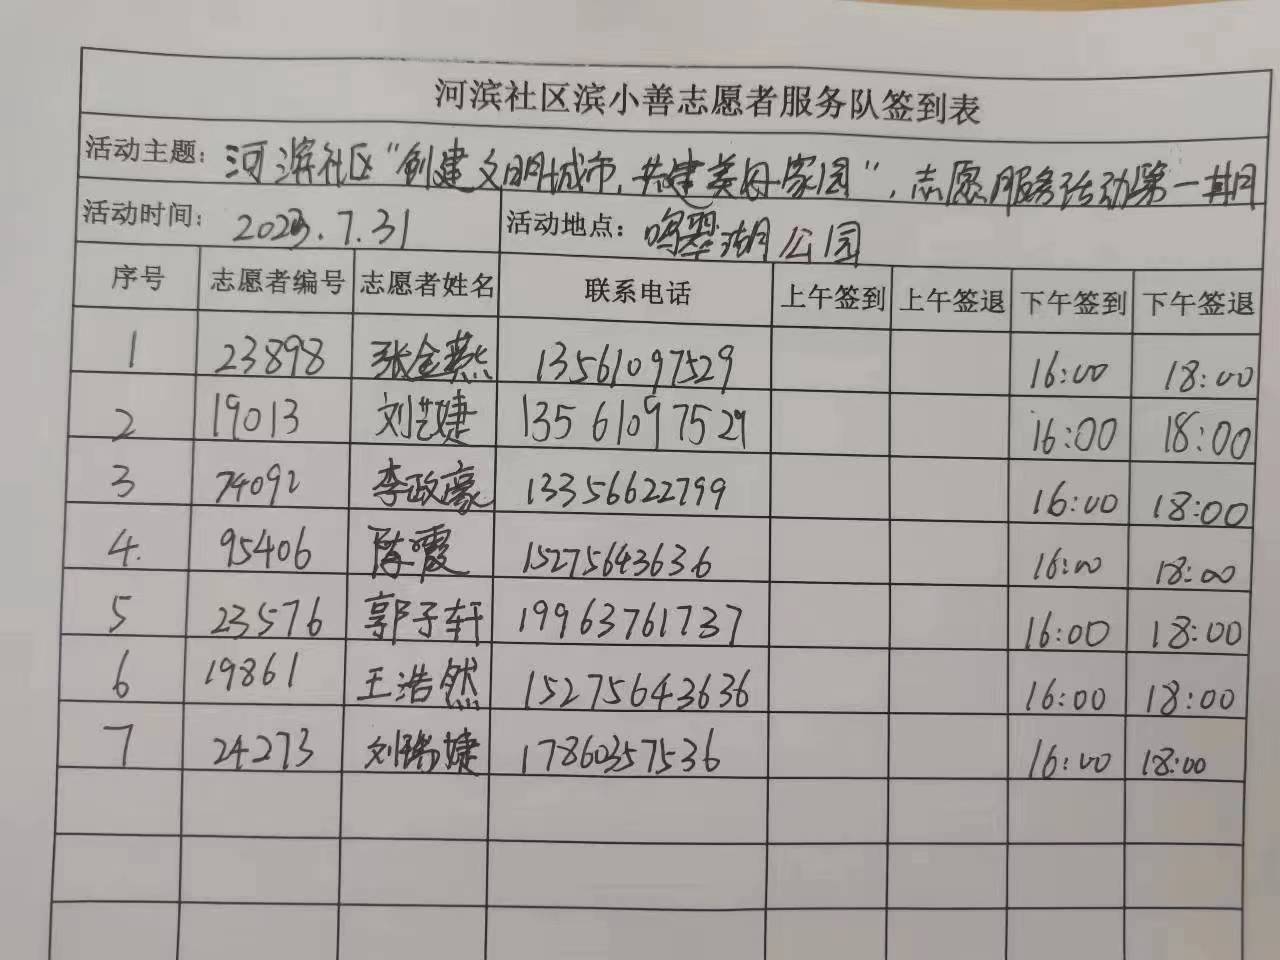 河滨社区滨小善志愿者服务队签到表
活动主题：河滨社区“创建文明城市，共建美好家园”，志愿服务活动第一期
活动时间：2023.7.31 活动地点：鸣翠湖公园
序号 志愿者编号 志愿者姓名 联系电话 上午签到 上午签退 下午签到 下午签退
1 23898 张金燕 13561097529 16:00 18:00
2 19013 刘艺婕 13561097529 16:00 18:00
3 74092 李政豪 13356622799 16:00 18:00
4. 95406 陈霞 15275643636 16:00 18:00
5 23576 郭子轩 19963761737 16:00 18:00
6 19861 王浩然 15275643636 16:00 18:00
7 24273 刘瑞婕 17860357536 16:00 18:00